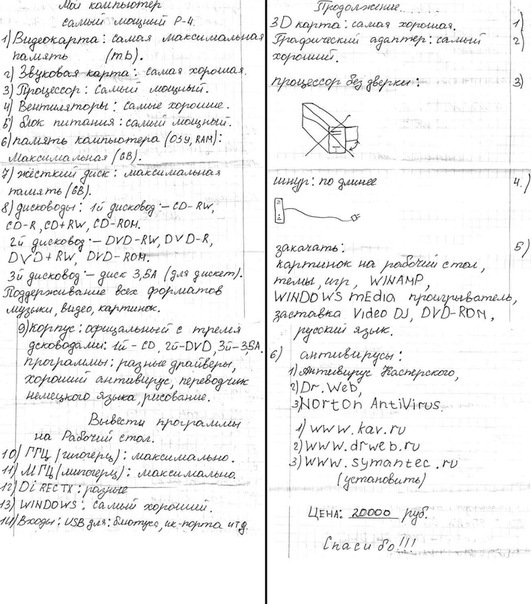 Мой компьютер
самый мощный P-4.
1) Видеокарта: самая максимальная
память (mb).
2) Звуковая карта: самая хорошая.
3) Процессор: самый мощный.
4) Вентиляторы: самые хорошие.
5) блок питания: самый мощный.
6) память компьютера (ОЗУ, RAM):
Максимальная (GB).
7) жёсткий диск: максимальная
память (GB).
8) дисководы: 1й дисковод – CD-RW,
CD-R, CD+RW, CD-ROM.
2й дисковод – DVD-RW, DVD-R,
DVD+RW, DVD-ROM.
3й дисковод – диск 3,5A (для дискет).
Поддерживание всех форматов
музыки, видео, картинок.
9) Корпус: официальный с тремя
дсководами: 1й - CD, 2й-DVD, 3й-3,5A.
программы: разные драйверы,
хороший антивирус, переводчик
немецкого языка, рисование.
Вывести программы
на Рабочий стол.
10) ГГЦ (гигогерц): максимально.
11) МГЦ (мигогерц): максимально.
12) DiRECTX: разные
13) WINDOWS: самый хороший.
14) Входы: USB для: блютус, ик-порта итд.
Продолжение....
3D карта: самая хорошая. 1)
Графический адаптер: самый 2)
хороший.
процессор без дверки: 3)
шнур: по длинее 4.)
закачать: 5)
картинок на рабочий стол,
темы, игр, WINAMP,
WINDOWS mEdia проигрыватель,
заставка Video DJ, DVD-ROM,
русский язык.
6) антивирусы:
1) Антивирус Касперского,
2) Dr. Web,
3) NORTON AntiVirus.
1) www.kav.ru
2) www.drweb.ru
3) www.symantec.ru
(установить)
ЦЕНА: 20000 руб.
Спасибо!!!